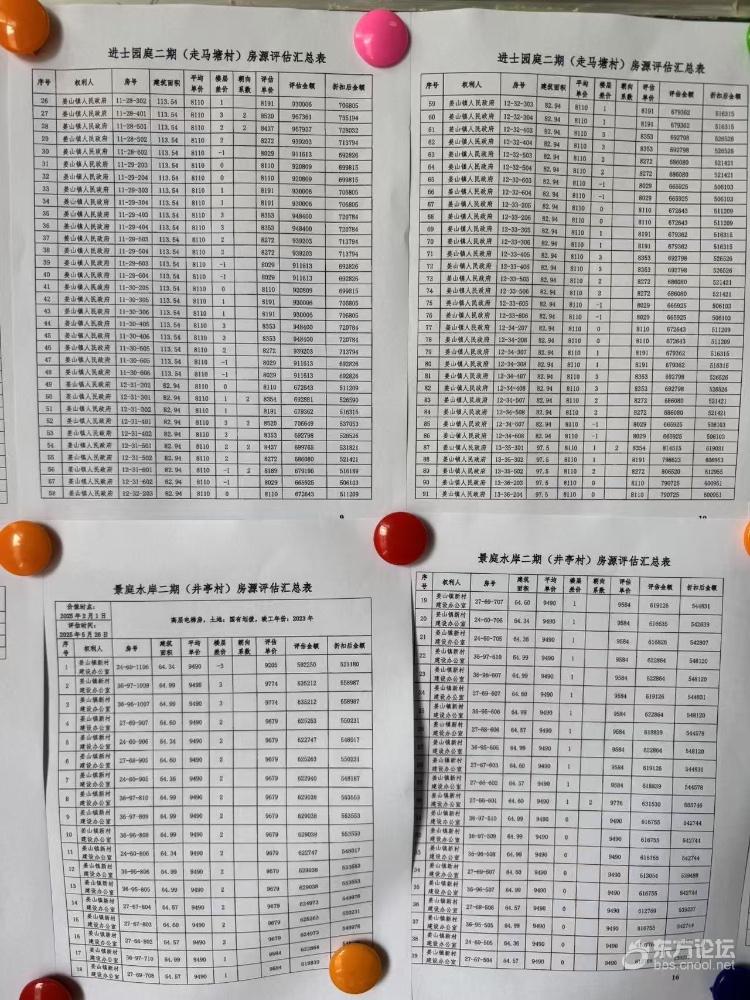 进士园庭二期（走马塘村）房源评估汇总表
序号 权利人 房号 建筑面积 平均单价 楼层差价 朝向系数 评估单价 评估金额 折扣后金额
26 姜山镇人民政府 11-28-302 113.54 8110 1 8191 930006 706805
27 姜山镇人民政府 11-28-401 113.54 8110 3 2 8520 967361 735194
28 姜山镇人民政府 11-28-501 113.54 8110 2 2 8437 957937 728032
29 姜山镇人民政府 11-28-502 113.54 8110 2 8272 939203 713794
30 姜山镇人民政府 11-28-602 113.54 8110 -1 8029 911613 692826
31 姜山镇人民政府 11-29-203 113.54 8110 0 8110 920809 699815
32 姜山镇人民政府 11-29-204 113.54 8110 0 8110 920809 699815
33 姜山镇人民政府 11-29-303 113.54 8110 1 8191 930006 706805
34 姜山镇人民政府 11-29-304 113.54 8110 1 8191 930006 706805
35 姜山镇人民政府 11-29-403 113.54 8110 3 8353 948400 720784
36 姜山镇人民政府 11-29-404 113.54 8110 3 8353 948400 720784
37 姜山镇人民政府 11-29-503 113.54 8110 2 8272 939203 713794
38 姜山镇人民政府 11-29-504 113.54 8110 2 8272 939203 713794
39 姜山镇人民政府 11-29-603 113.54 8110 -1 8029 911613 692826
40 姜山镇人民政府 11-29-604 113.54 8110 -1 8029 911613 692826
41 姜山镇人民政府 11-30-205 113.54 8110 0 8110 920809 699815
42 姜山镇人民政府 11-30-305 113.54 8110 1 8191 930006 706805
43 姜山镇人民政府 11-30-306 113.54 8110 1 8191 930006 706805
44 姜山镇人民政府 11-30-405 113.54 8110 3 8353 948400 720784
45 姜山镇人民政府 11-30-406 113.54 8110 3 8353 948400 720784
46 姜山镇人民政府 11-30-505 113.54 8110 2 8272 939203 713794
47 姜山镇人民政府 11-30-605 113.54 8110 -1 8029 911613 692826
48 姜山镇人民政府 11-30-606 113.54 8110 -1 8029 911613 692826
49 姜山镇人民政府 12-31-202 82.94 8110 0 8110 672643 511209
50 姜山镇人民政府 12-31-301 82.94 8110 1 2 8354 692881 526590
51 姜山镇人民政府 12-31-302 82.94 8110 1 8191 679362 516315
52 姜山镇人民政府 12-31-401 82.94 8110 3 2 8520 706649 537053
53 姜山镇人民政府 12-31-402 82.94 8110 3 8353 692798 526526
54 姜山镇人民政府 12-31-501 82.94 8110 2 2 8437 699765 531821
55 姜山镇人民政府 12-31-502 82.94 8110 2 8272 686080 521421
56 姜山镇人民政府 12-31-601 82.94 8110 -1 2 8189 679196 516189
57 姜山镇人民政府 12-31-602 82.94 8110 -1 8029 665925 506103
58 姜山镇人民政府 12-32-203 82.94 8110 0 8110 672643 511209
9
进士园庭二期（走马塘村）房源评估汇总表
序号 权利人 房号 建筑面积 平均单价 楼层差价 朝向系数 评估单价 评估金额 折扣后金额
59 姜山镇人民政府 12-32-303 82.94 8110 1 8191 679362 516315
60 姜山镇人民政府 12-32-304 82.94 8110 1 8191 679362 516315
61 姜山镇人民政府 12-32-403 82.94 8110 3 8353 692798 526526
62 姜山镇人民政府 12-32-404 82.94 8110 3 8353 692798 526526
63 姜山镇人民政府 12-32-503 82.94 8110 2 8272 686080 521421
64 姜山镇人民政府 12-32-504 82.94 8110 2 8272 686080 521421
65 姜山镇人民政府 12-32-603 82.94 8110 -1 8029 665925 506103
66 姜山镇人民政府 12-32-604 82.94 8110 -1 8029 665925 506103
67 姜山镇人民政府 12-33-205 82.94 8110 0 8110 672643 511209
68 姜山镇人民政府 12-33-206 82.94 8110 0 8110 672643 511209
69 姜山镇人民政府 12-33-305 82.94 8110 1 8191 679362 516315
70 姜山镇人民政府 12-33-306 82.94 8110 1 8191 679362 516315
71 姜山镇人民政府 12-33-405 82.94 8110 3 8353 692798 526526
72 姜山镇人民政府 12-33-406 82.94 8110 3 8353 692798 526526
73 姜山镇人民政府 12-33-505 82.94 8110 2 8272 686080 521421
74 姜山镇人民政府 12-33-506 82.94 8110 2 8272 686080 521421
75 姜山镇人民政府 12-33-605 82.94 8110 -1 8029 665925 506103
76 姜山镇人民政府 12-33-606 82.94 8110 -1 8029 665925 506103
77 姜山镇人民政府 12-34-207 82.94 8110 0 8110 672643 511209
78 姜山镇人民政府 12-34-208 82.94 8110 0 8110 672643 511209
79 姜山镇人民政府 12-34-307 82.94 8110 1 8191 679362 516315
80 姜山镇人民政府 12-34-308 82.94 8110 1 8191 679362 516315
81 姜山镇人民政府 12-34-407 82.94 8110 3 8353 692798 526526
82 姜山镇人民政府 12-34-408 82.94 8110 3 8353 692798 526526
83 姜山镇人民政府 12-34-507 82.94 8110 2 8272 686080 521421
84 姜山镇人民政府 12-34-508 82.94 8110 2 8272 686080 521421
85 姜山镇人民政府 12-34-607 82.94 8110 -1 8029 665925 506103
86 姜山镇人民政府 12-34-608 82.94 8110 -1 8029 665925 506103
87 姜山镇人民政府 13-35-301 97.5 8110 1 2 8354 814515 619031
88 姜山镇人民政府 13-35-302 97.5 8110 1 8191 798623 606953
89 姜山镇人民政府 13-35-502 97.5 8110 2 8272 806520 612955
90 姜山镇人民政府 13-36-203 97.5 8110 0 8110 790725 600951
91 姜山镇人民政府 13-36-204 97.5 8110 0 8110 790725 600951
10
景庭水岸二期（井亭村）房源评估汇总表
价值时点：
2025年2月1日
评估时间：
2025年5月26日
高层电梯房，土地：国有划拨，竣工年份：2023年
序号 权利人 房号 建筑面积 平均单价 楼层差价 朝向系数 评估单价 评估金额 折扣后金额
1 姜山镇新村建设办公室 24-60-1106 64.34 9490 -3 9205 592250 521180
2 姜山镇新村建设办公室 36-97-1009 64.99 9490 3 9774 635212 558987
3 姜山镇新村建设办公室 36-96-1007 64.99 9490 3 9774 635212 558987
4 姜山镇新村建设办公室 27-69-907 64.60 9490 2 9679 625263 550231
5 姜山镇新村建设办公室 24-60-906 64.34 9490 2 9679 622747 548017
6 姜山镇新村建设办公室 27-68-905 64.60 9490 2 9679 625263 550231
7 姜山镇新村建设办公室 24-60-905 64.36 9490 2 9679 622940 548187
8 姜山镇新村建设办公室 36-97-810 64.99 9490 2 9679 629038 553553
9 姜山镇新村建设办公室 36-97-809 64.99 9490 2 9679 629038 553553
10 姜山镇新村建设办公室 36-96-808 64.99 9490 2 9679 629038 553553
11 姜山镇新村建设办公室 24-60-806 64.34 9490 2 9679 622747 548017
12 姜山镇新村建设办公室 36-95-806 64.99 9490 2 9679 629038 553553
13 姜山镇新村建设办公室 36-95-805 64.99 9490 2 9679 629038 553553
14 姜山镇新村建设办公室 27-67-804 64.57 9490 2 9679 624973
15 姜山镇新村建设办公室 27-67-803 64.60 9490 2 9679 625263
16 姜山镇新村建设办公室 27-66-802 64.57 9490 2 9679 624973
17 姜山镇新村建设办公室 36-97-710 64.99 9490 1 9584 622864
18 姜山镇新村建设办公室 27-69-708 64.57 9490 1 9584 618839
景庭水岸二期（井亭村）房源评估汇总表
序号 权利人 房号 建筑面积 平均单价 楼层差价 朝向系数 评估单价 评估金额 折扣后金额
19 姜山镇新村建设办公室 27-69-707 64.60 9490 1 9584 619126 544831
20 姜山镇新村建设办公室 27-68-706 64.57 9490 1 9584 544578
21 姜山镇新村建设办公室 24-60-705 64.36 9490 1 9584 616826 542807
22 姜山镇新村建设办公室 36-97-610 64.99 9490 1 9584 622864 548120
姜山镇新村建设办公室 36-96-607 64.99 9490 1 9584 622864 548120
姜山镇新村建设办公室 27-69-607 64.60 9490 1 9584 619126 544831
姜山镇新村建设办公室 36-95-606 64.99 9490 1 9584 622864 548120
姜山镇新村建设办公室 27-68-606 64.57 9490 1 9584 544578
姜山镇新村建设办公室 36-95-605 64.99 9490 1 9584 622864 548120
姜山镇新村建设办公室 27-67-603 64.60 9490 1 9584 619126 544831
姜山镇新村建设办公室 27-66-602 64.57 9490 1 9584 618839 544578
姜山镇新村建设办公室 27-66-601 64.60 9490 1 2 9776 631530
姜山镇新村建设办公室 36-97-510 64.99 9490 0 9490 616755 542744
姜山镇新村建设办公室 36-97-509 64.99 9490 0 9490 616755 542744
姜山镇新村建设办公室 36-96-508 64.99 9490 0 9490 616755 542744
姜山镇新村建设办公室 64.60 9490 0 9490
姜山镇新村建设办公室 36-96-507 64.99 9490 0 9490 616755 542744
姜山镇新村建设办公室 64.57 9490 0 9490
姜山镇新村建设办公室 36-95-505 64.99 9490 0 9490 616755 542744
姜山镇新村建设办公室 24-60-505 64.36 9490 0 9490
姜山镇新村建设办公室 27-67-504 64.57 9490 0 9490
10
东方论坛
bbs.cnool.net